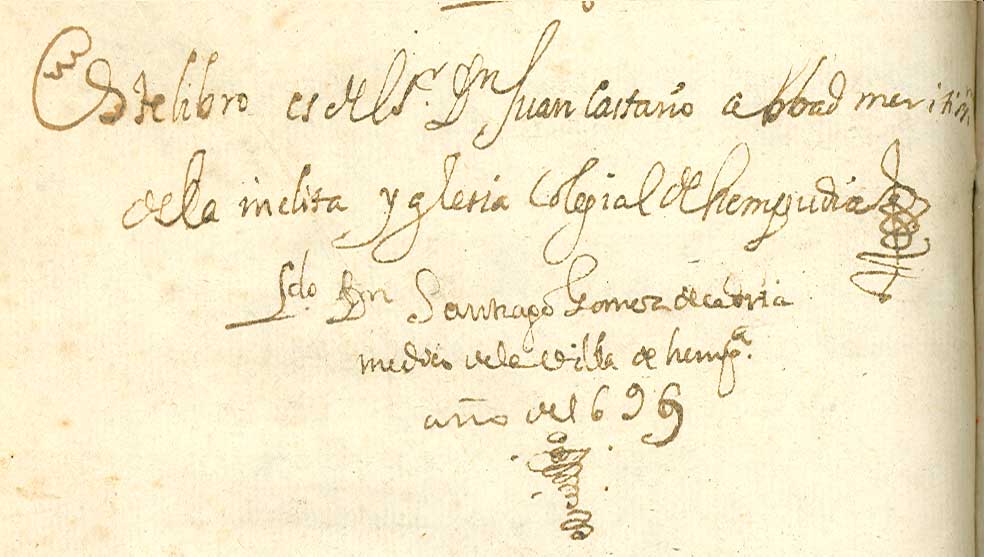 Este libro es del Sr. Dn Juan Castaño abbad meritiss
de la inclita yglesia Colegial de hempudia
Ldo. Dn Santiago Gomez de cabria
medico de la villa de hempa.
año de 1696